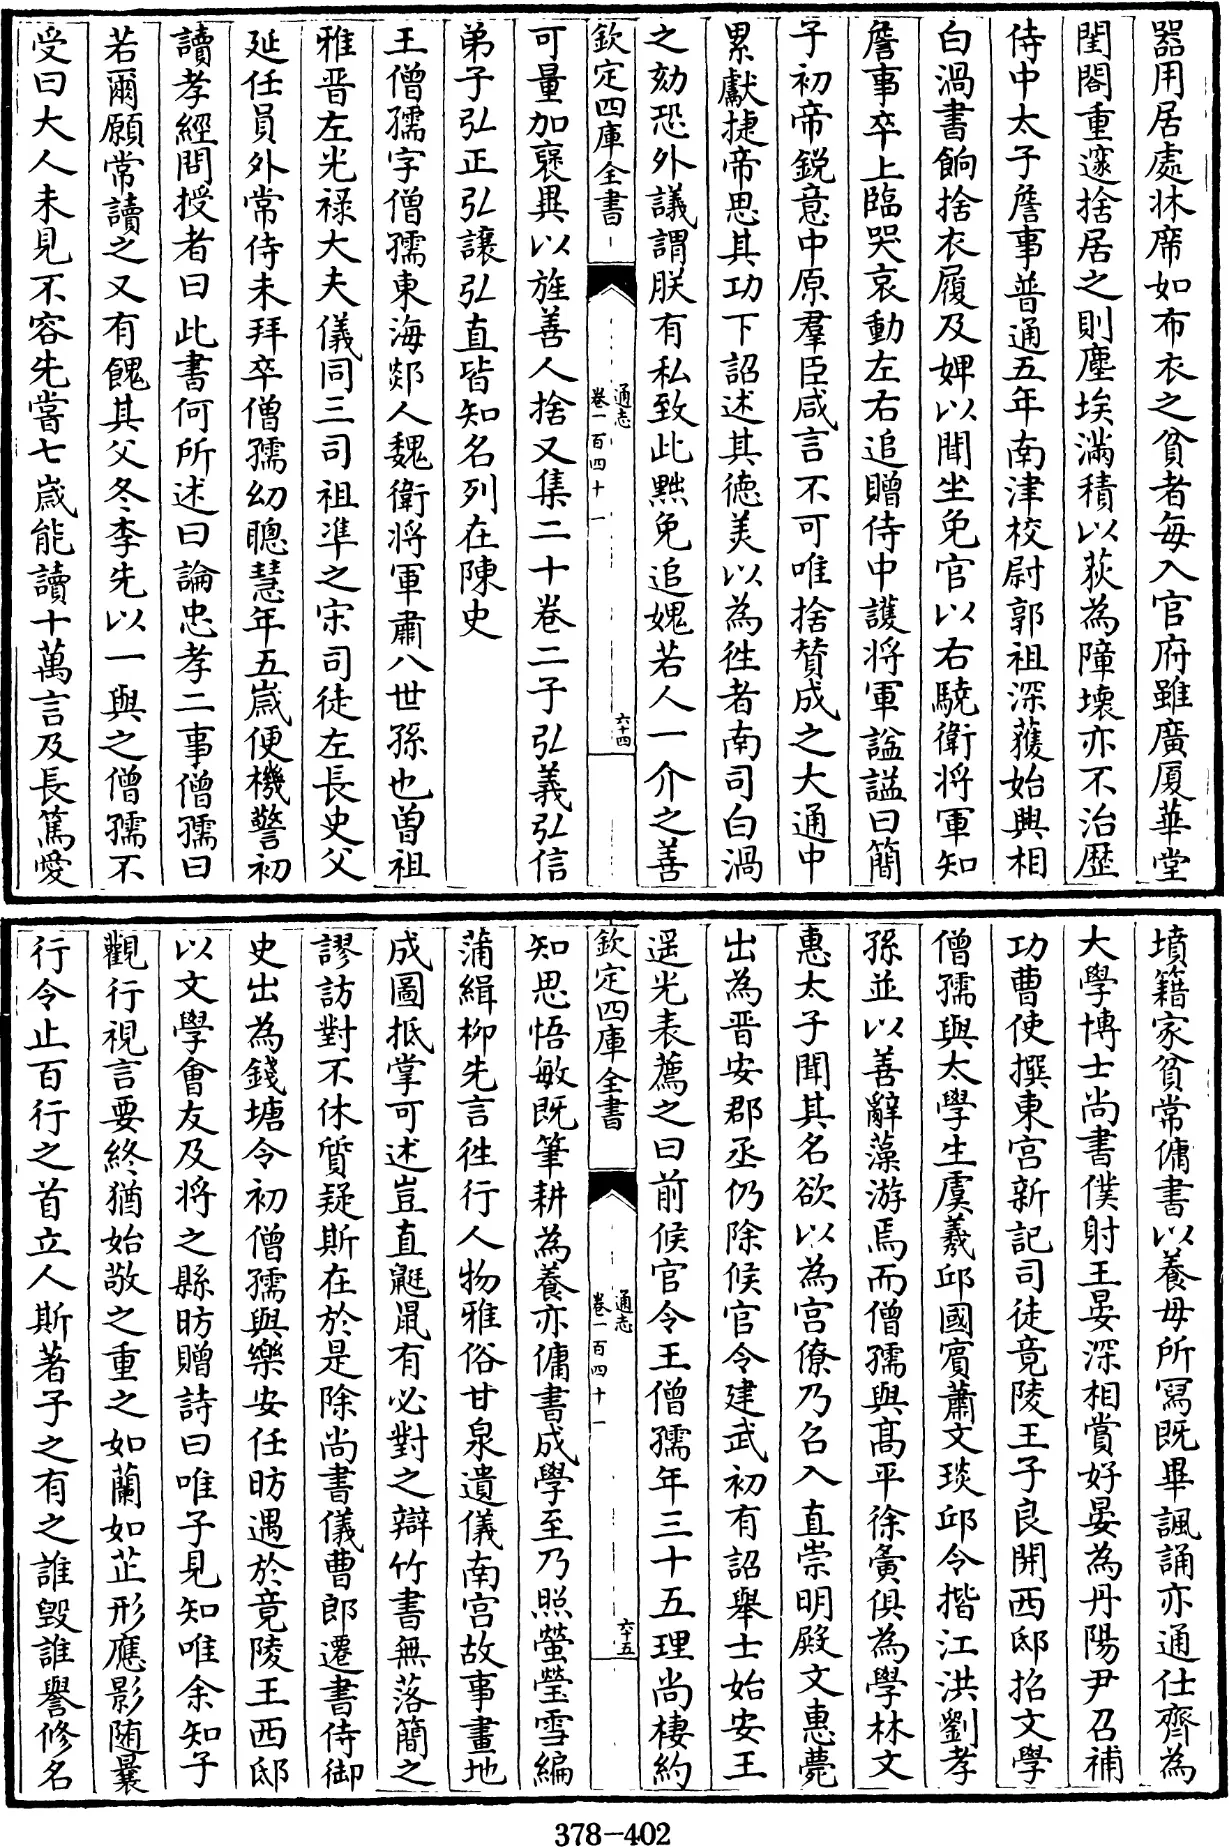 器用居處牀席如布衣之貧者每入官府雖廣厦華堂
閨閤重邃捨居之則塵埃滿積以荻為障壊亦不治歴
侍中太子詹事普通五年南津校尉郭祖深獲始興相
白渦書餉捨衣履及婢以聞坐免官以右驍衛將軍知
詹事卒上臨哭哀動左右追贈侍中護將軍諡諡曰簡
子初帝銳意中原羣臣咸言不可唯捨賛成之大通中
累獻捷帝思其功下詔述其徳美以為徃者南司白渦
之劾恐外議謂朕有私致此黜免追媿若人一介之善
欽定四庫全書
通志
卷一百四十一
六十四
可量加褒異以旌善人捨又集二十卷二子弘義弘信
弟子弘正弘讓弘直皆知名列在陳史
王僧孺字僧孺東海郯人魏衛將軍肅八世孫也曽祖
雅晋左光禄大夫儀同三司祖凖之宋司徒左長史父
延任員外常侍未拜卒僧孺幼聰慧年五嵗便機警初
讀孝經問授者曰此書何所述曰論忠孝二事僧孺曰
若爾願常讀之又有餽其父冬李先以一與之僧孺不
受曰大人未見不容先嘗七嵗能讀十萬言及長篤愛
墳籍家貧常傭書以養母所冩既畢諷誦亦通仕齊為
大學博士尚書僕射王晏深相賞好晏為丹陽尹召補
功曹使撰東宫新記司徒竟陵王子良開西邸招文學
僧孺與太學生虞羲邱國賓蕭文琰邱令揩江洪劉孝
孫並以善辭藻游焉而僧孺與髙平徐夤俱為學林文
惠太子聞其名欲以為宫僚乃召入直崇明殿文惠薨
出為晋安郡丞仍除候官令建武初有詔舉士始安王
遥光表薦之曰前候官令王僧孺年三十五理尚棲約
欽定四庫全書
通志
卷一百四十一
六十五
知思悟敏既筆耕為養亦傭書成學至乃照螢瑩雪編
蒲緝柳先言徃行人物雅俗甘泉遺儀南宫故事畫地
成圖抵掌可述豈直鼮鼠有必對之辯竹書無落簡之
謬訪對不休質疑斯在於是除尚書儀曹郎遷書侍御
史出為錢塘令初僧孺與樂安任昉遇於竟陵王西邸
以文學會友及将之縣昉贈詩曰唯子見知唯余知子
觀行視言要終猶始敬之重之如蘭如芷形應影随曩
行令止百行之首立人斯著子之有之誰毀誰譽修名
378-402